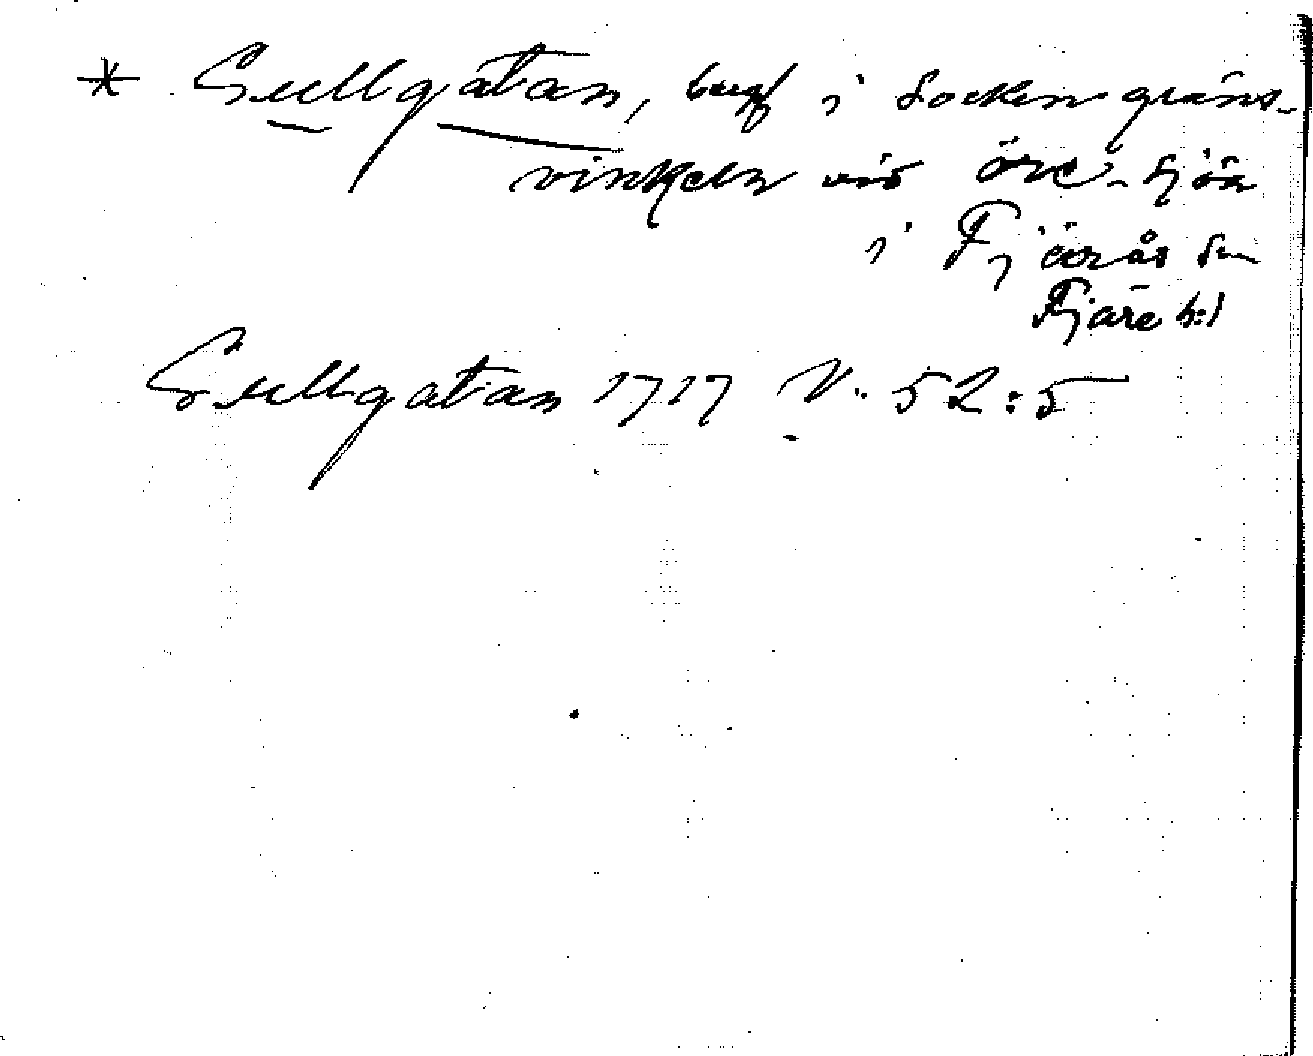 * Gullgatan, i sockengräns-
vinkeln vid sjön
i Fjärås sn
Fjäre h:d
Gullgatan 1717 V. 52:5